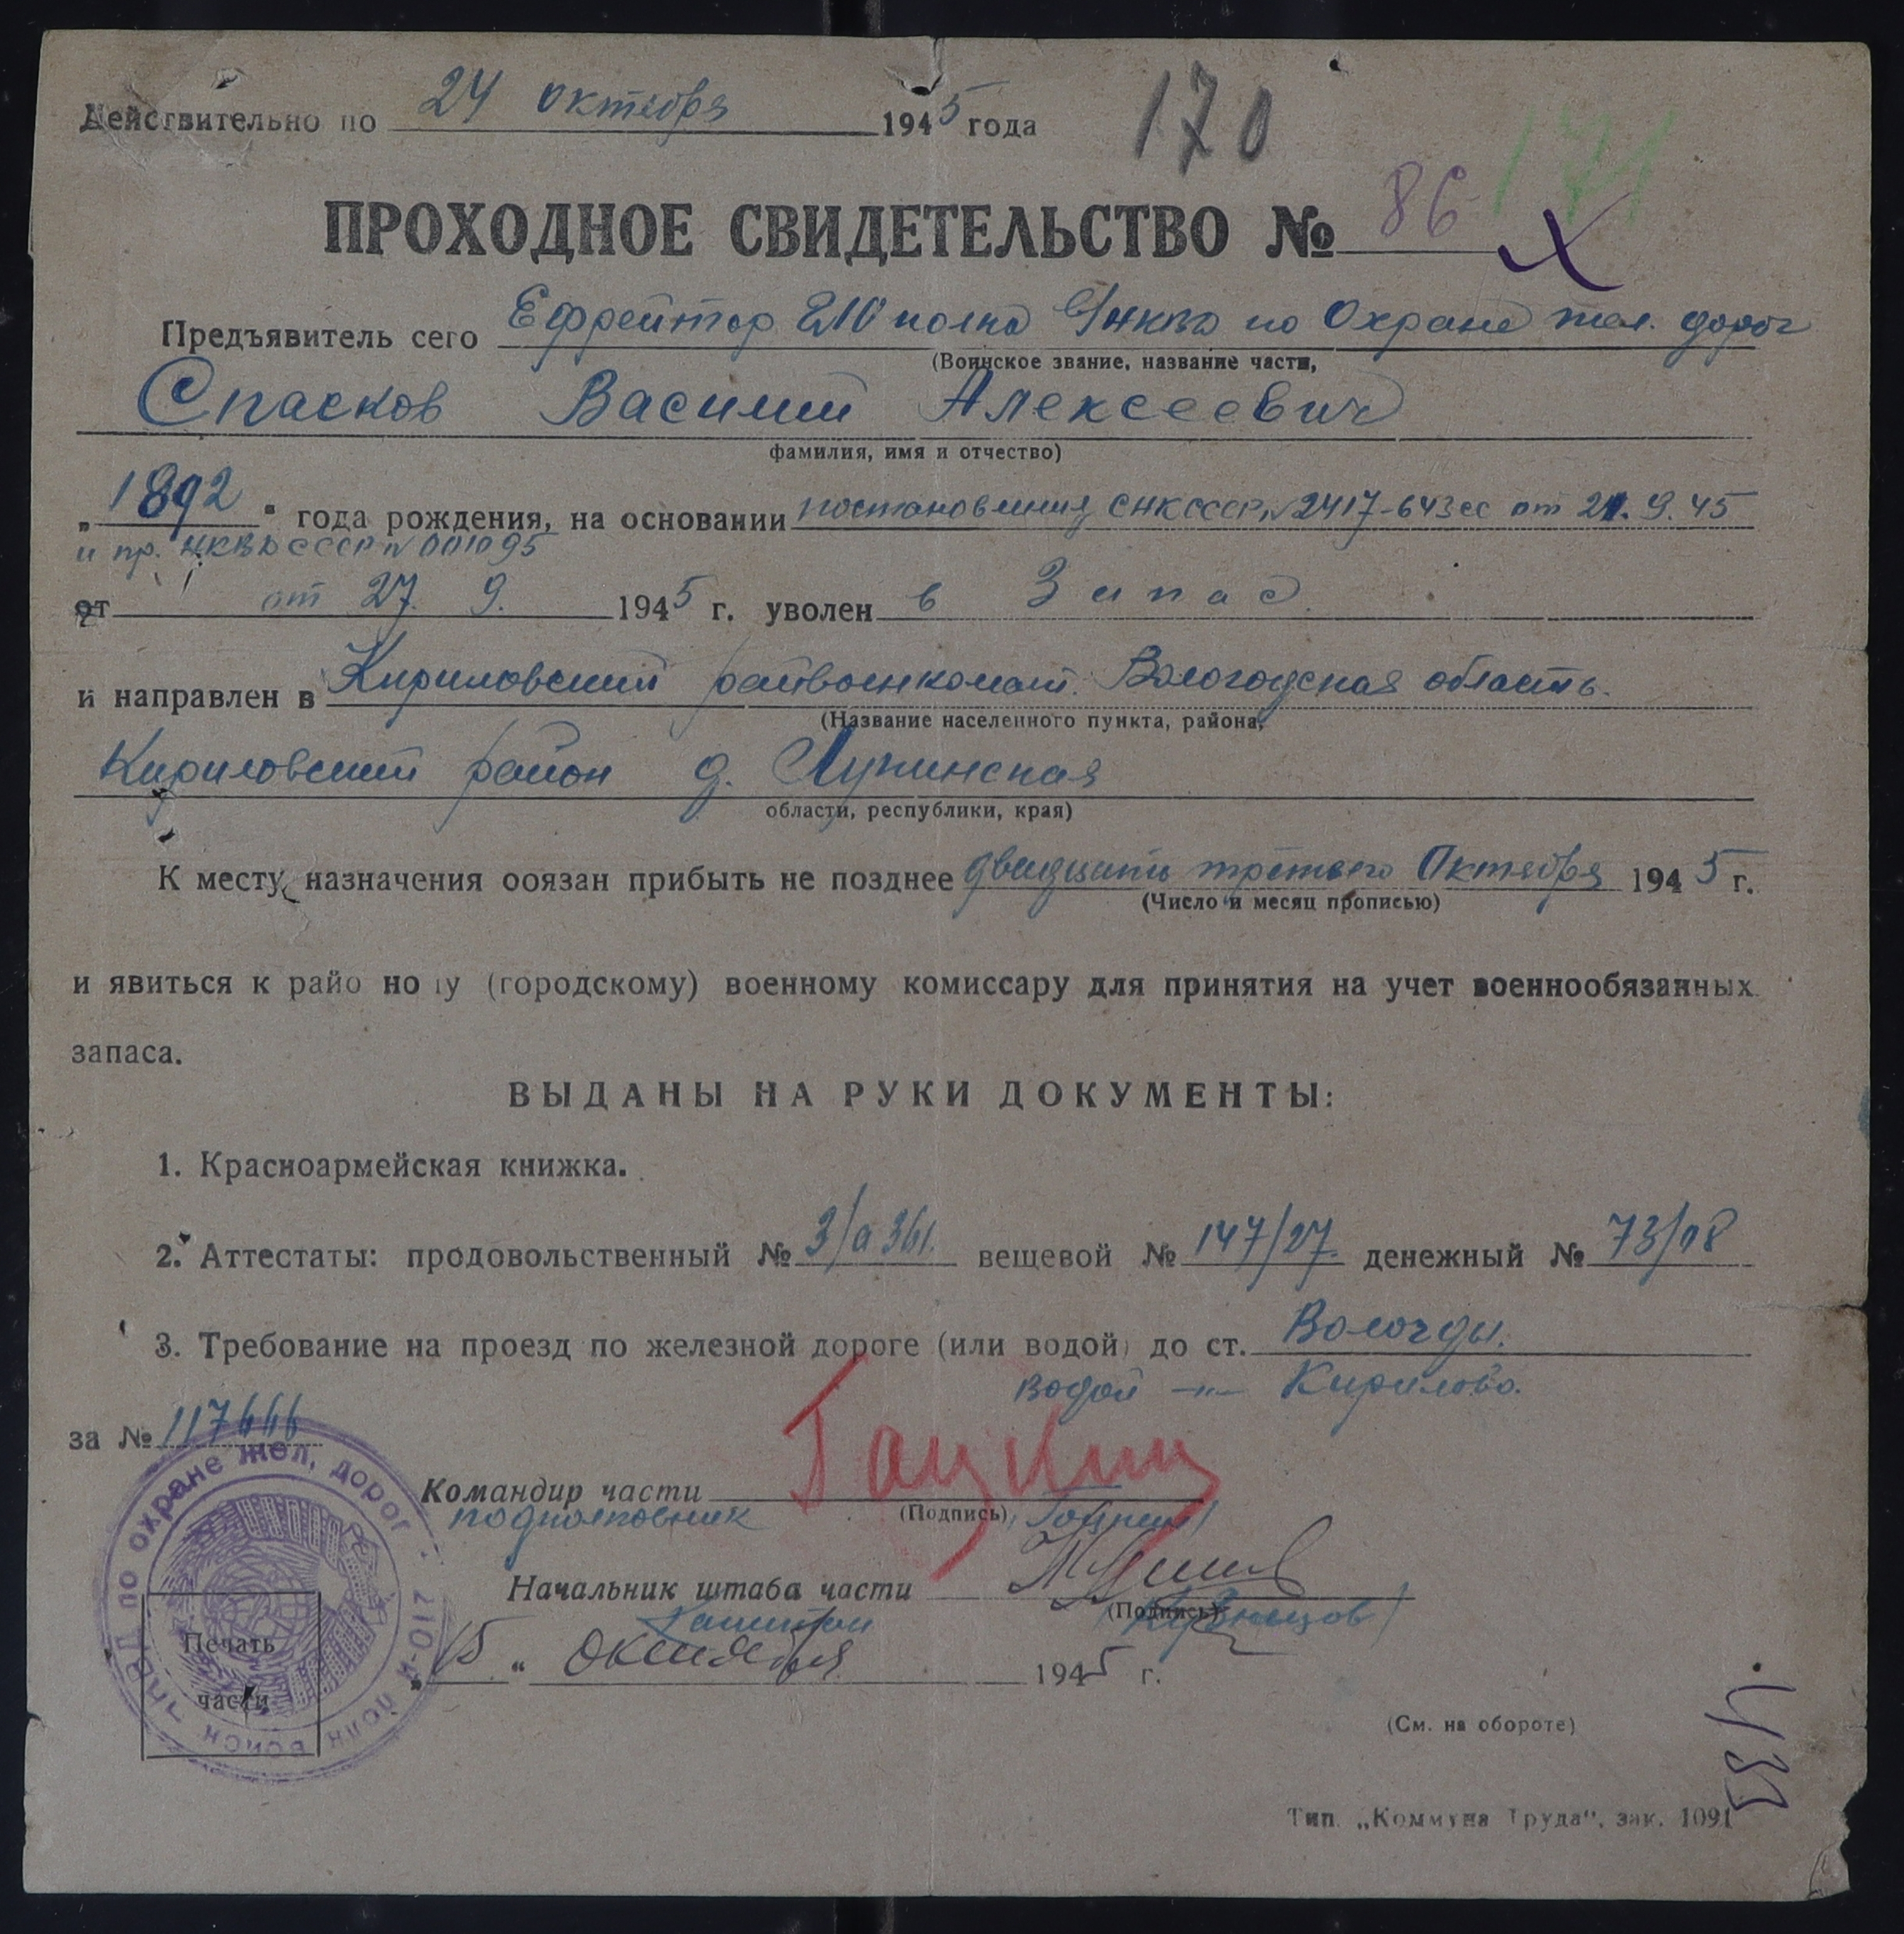 Действительно по 24 октября 1945 года
170
171
ПРОХОДНОЕ СВИДЕТЕЛЬСТВО № 86
Предъявитель сего Ефрейтор 210 полка НКВД по Охране жел. дорог
(Воинское звание, название части,
Спасков Василий Алексеевич
фамилия, имя и отчество)
„1892" года рождения, на основании постановления СНК СССР N 2417-643сс от 21.9.45
и пр. НКВД СССР N 001095
от от 27. 9. 1945 г. уволен в Запас.
и направлен в Кириловский райвоенкомат. Вологодская область.
(Название населенного пункта, района,
Кириловский район д. Лупинская
области, республики, края)
К месту назначения обязан прибыть не позднее двадцать третьего Октября 1945 г.
(Число и месяц прописью)
и явиться к райо но у (городскому) военному комиссару для принятия на учет военнообязанных
запаса.
ВЫДАНЫ НА РУКИ ДОКУМЕНТЫ:
1. Красноармейская книжка.
2. Аттестаты: продовольственный № 3/а 361. вещевой № 147/27. денежный № 73/08
3. Требование на проезд по железной дороге (или водой) до ст. Вологды.
водой —"— Кирилово.
за № 117666
Командир части Гацкий
подполковник (Подпись) /Гацкий/
Начальник штаба части
Капитан (Подпись) /Кузнецов/
„15" октября 1945 г.
по охране жел. дорог
полк войск
Печать
части
(См. на обороте)
Тип. „Коммуна Труда", зак. 1091